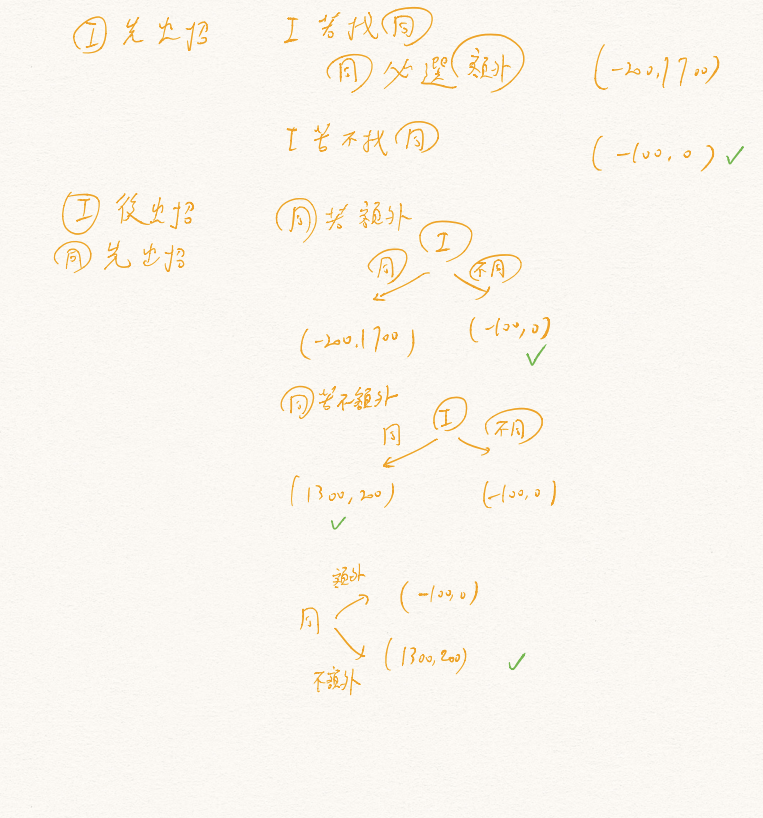 I 先出招
I 若找同
同必選額外
(-200,1700)
I 若不找同
(-100,0) ✓
I 後出招
同先出招
同若額外
I
同 不同
(-200,1700) (-100,0)
✓
同若不額外
I
同 不同
(1300,200) (-100,0)
✓
額外
(-100,0)
同
(1300,200) ✓
不額外